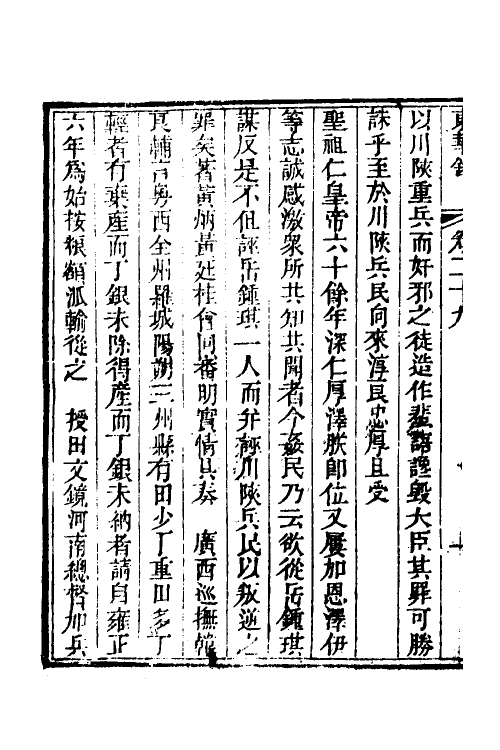 東華錄 卷二十九
以川陝重兵而奸邪之徒造作蜚語讒毀大臣其罪可勝
誅乎至於川陝兵民向來淳良忠厚且受
聖祖仁皇帝六十餘年深仁厚澤朕卽位又屢加恩澤伊
等志誠感激衆所共知共聞者今姦民乃云欲從岳鍾琪
謀反是不但誣岳鍾琪一人而并輕川陝兵民以叛逆之
罪矣著黃炳黃廷桂會同審明實情具奏　廣西巡撫韓
良輔言粵西全州羅城陽朔三州縣有田少丁重田多丁
輕者有棄產而丁銀未除得產而丁銀未納者請自雍正
六年爲始按糧額派輸從之　授田文鏡河南總督加兵